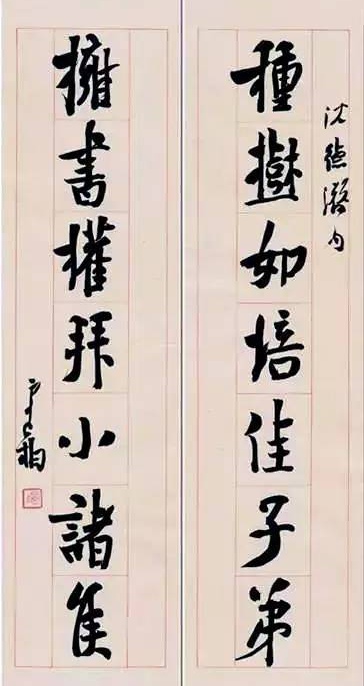 沈德潛句
種樹如培佳子弟
擁書權拜小諸侯